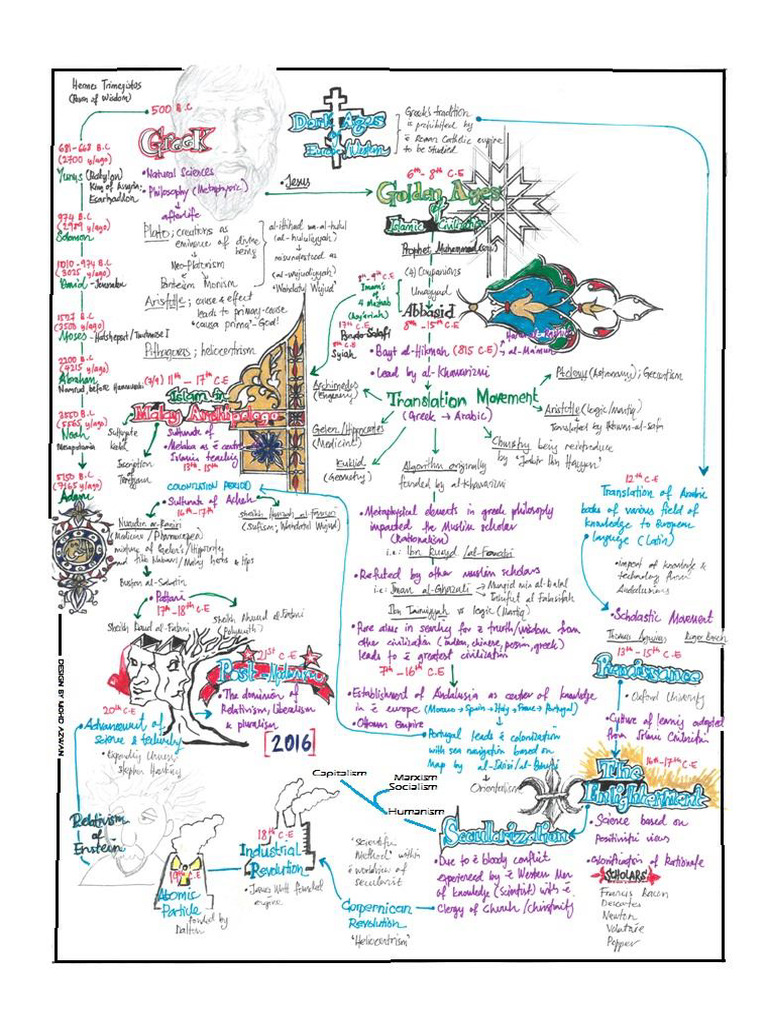 Hermes Trimegistos
(Haven of Wisdom)
500 B.C
Greek
• Natural Sciences
• Philosophy (Metaphysic)
afterlife
Plato; creations as
eminence of divine
being
Neo-Platonism
Pantheism Monism
Aristotle; cause & effect
leads to primary-cause
"causa prima"-God!
Pythagoras; heliocentrism
al-ittihad wa-al-hulul
(al-hululiyyah)
misunderstood as
(al-wujudiyyah)
"Wahdatul Wujud"
681-668 B.C
(2700 y/ago)
Yunus (Babylon)
King of Assyria:
Esarhaddon
974 B.C
(2989 y/ago)
Solomon
1010-974 B.C
(3025 y/ago)
David-
1527 B.C
Moses-Hatshepsut/Thutmose I
2200 B.C
(4215 y/ago)
Abraham
Namrud before Hammurabi
3550 B.C
(5565 y/ago)
Noah
Mesopotamia
5150 B.C
(7165 y/ago)
Adam
Dark Ages
of
Europe/Western
Greek's tradition
is prohibited by
ē Roman Catholic empire
to be studied
• Jesus
6th - 8th C.E
Golden Ages
of
Islamic Civilization
Prophet Muhammad (saw)
(4) Companions
Umayyad
Abbasid
8th - 15th C.E
8th - 9th C.E
Imam's
of
4 Mazhab
17th C.E
8th C.E
Syiah
• Bayt al-Hikmah (815 C.E) ; al-Ma'mun
• Lead by al-Khawarizmi
Translation Movement
(Greek → Arabic)
Archimedes
(Engineering)
Galen/Hippocrates
(Medicine)
Euklid
(Geometry)
Algorithm originally
founded by al-Khawarizmi
Ptolemy (Astronomy); Geocentrism
Aristotle (logic/mantiq)
Chemistry being reintroduce
by "Jabir Ibn Hayyan"
(7/9) 11th - 17th C.E
Islam in
Malay Archipelago
Sultanate of
• Melaka as ē centre
Islamic teaching
13th - 15th
Sultanate
Kedah
Inscription of
Terengganu
COLONIZATION PERIOD
• Sultanate of Acheh
16th-17th
Nuruddin ar-Raniri
Medicine/Pharmacopeia
mixture of Galen's/Hippocrates
Bustan al-Salatin
Sheikh Hamzah al-Fansuri
(Sufism; Wahdatul Wujud)
• Pattani
17th-18th C.E
Sheikh Daud al-Fatani
Sheikh Ahmad al-Fatani
(Polymath)
• Metaphysical elements in greek philosophy
impacted the Muslim scholar
(Rationalism)
i.e: Ibn Rusyd/al-Faraabi
• Refuted by other muslim scholars
i.e: Imam al-Ghazali → Munqid min al-Dalal
Tahiful al Falasifah
Ibn Taimiyyah vs logic (Mantiq)
• Pure aims in searching for ē truth/wisdom from
other civilization (indian, chinese, persian, greek)
leads to ē greatest civilization
7th - 16th C.E
• Establishment of Andalusia as center of knowledge
in ē europe (Morocco→Spain→Italy→France→Portugal)
• Ottoman Empire
Portugal leads ē colonization
with sea navigation based on
Map by al-Idrisi/
Orientalism
12th C.E
Translation of Arabic
books of various field of
knowledge to European
language (Latin)
• Import of knowledge &
technology from
Andalusians
• Scholastic Movement
Thomas Aquinas
Roger Bacon
13th - 15th C.E
Renaissance
• Oxford University
• Culture of learning adopted
from Islamic Civilization
16th-17th C.E
The
Enlightenment
• Science based on
Positivistic views
• Glorification of Rationale
SCHOLARS
Francis Bacon
Descartes
Newton
Voltaire
Popper
21st C.E
Post-Modernism
• The dominion of
Relativism, Liberalism
& pluralism
[2016]
20th C.E
• Advancement of
science & technology
• Expanding Universe
Stephen Hawking
Relativism
of
Einstein
19th C.E
Atomic
Particle
founded by
Dalton
18th C.E
Industrial
Revolution
• James Watt founded
engine
Capitalism
Marxism
Socialism
Humanism
Secularization
• Due to ē bloody conflict
experienced by ē Western Men
of knowledge (scientist) with ē
Clergy of Church/christianity
"Scientific
Method" within
ē worldview of
secularist
Copernican
Revolution
'Heliocentrism"
DESIGN BY MOHD AZWAN